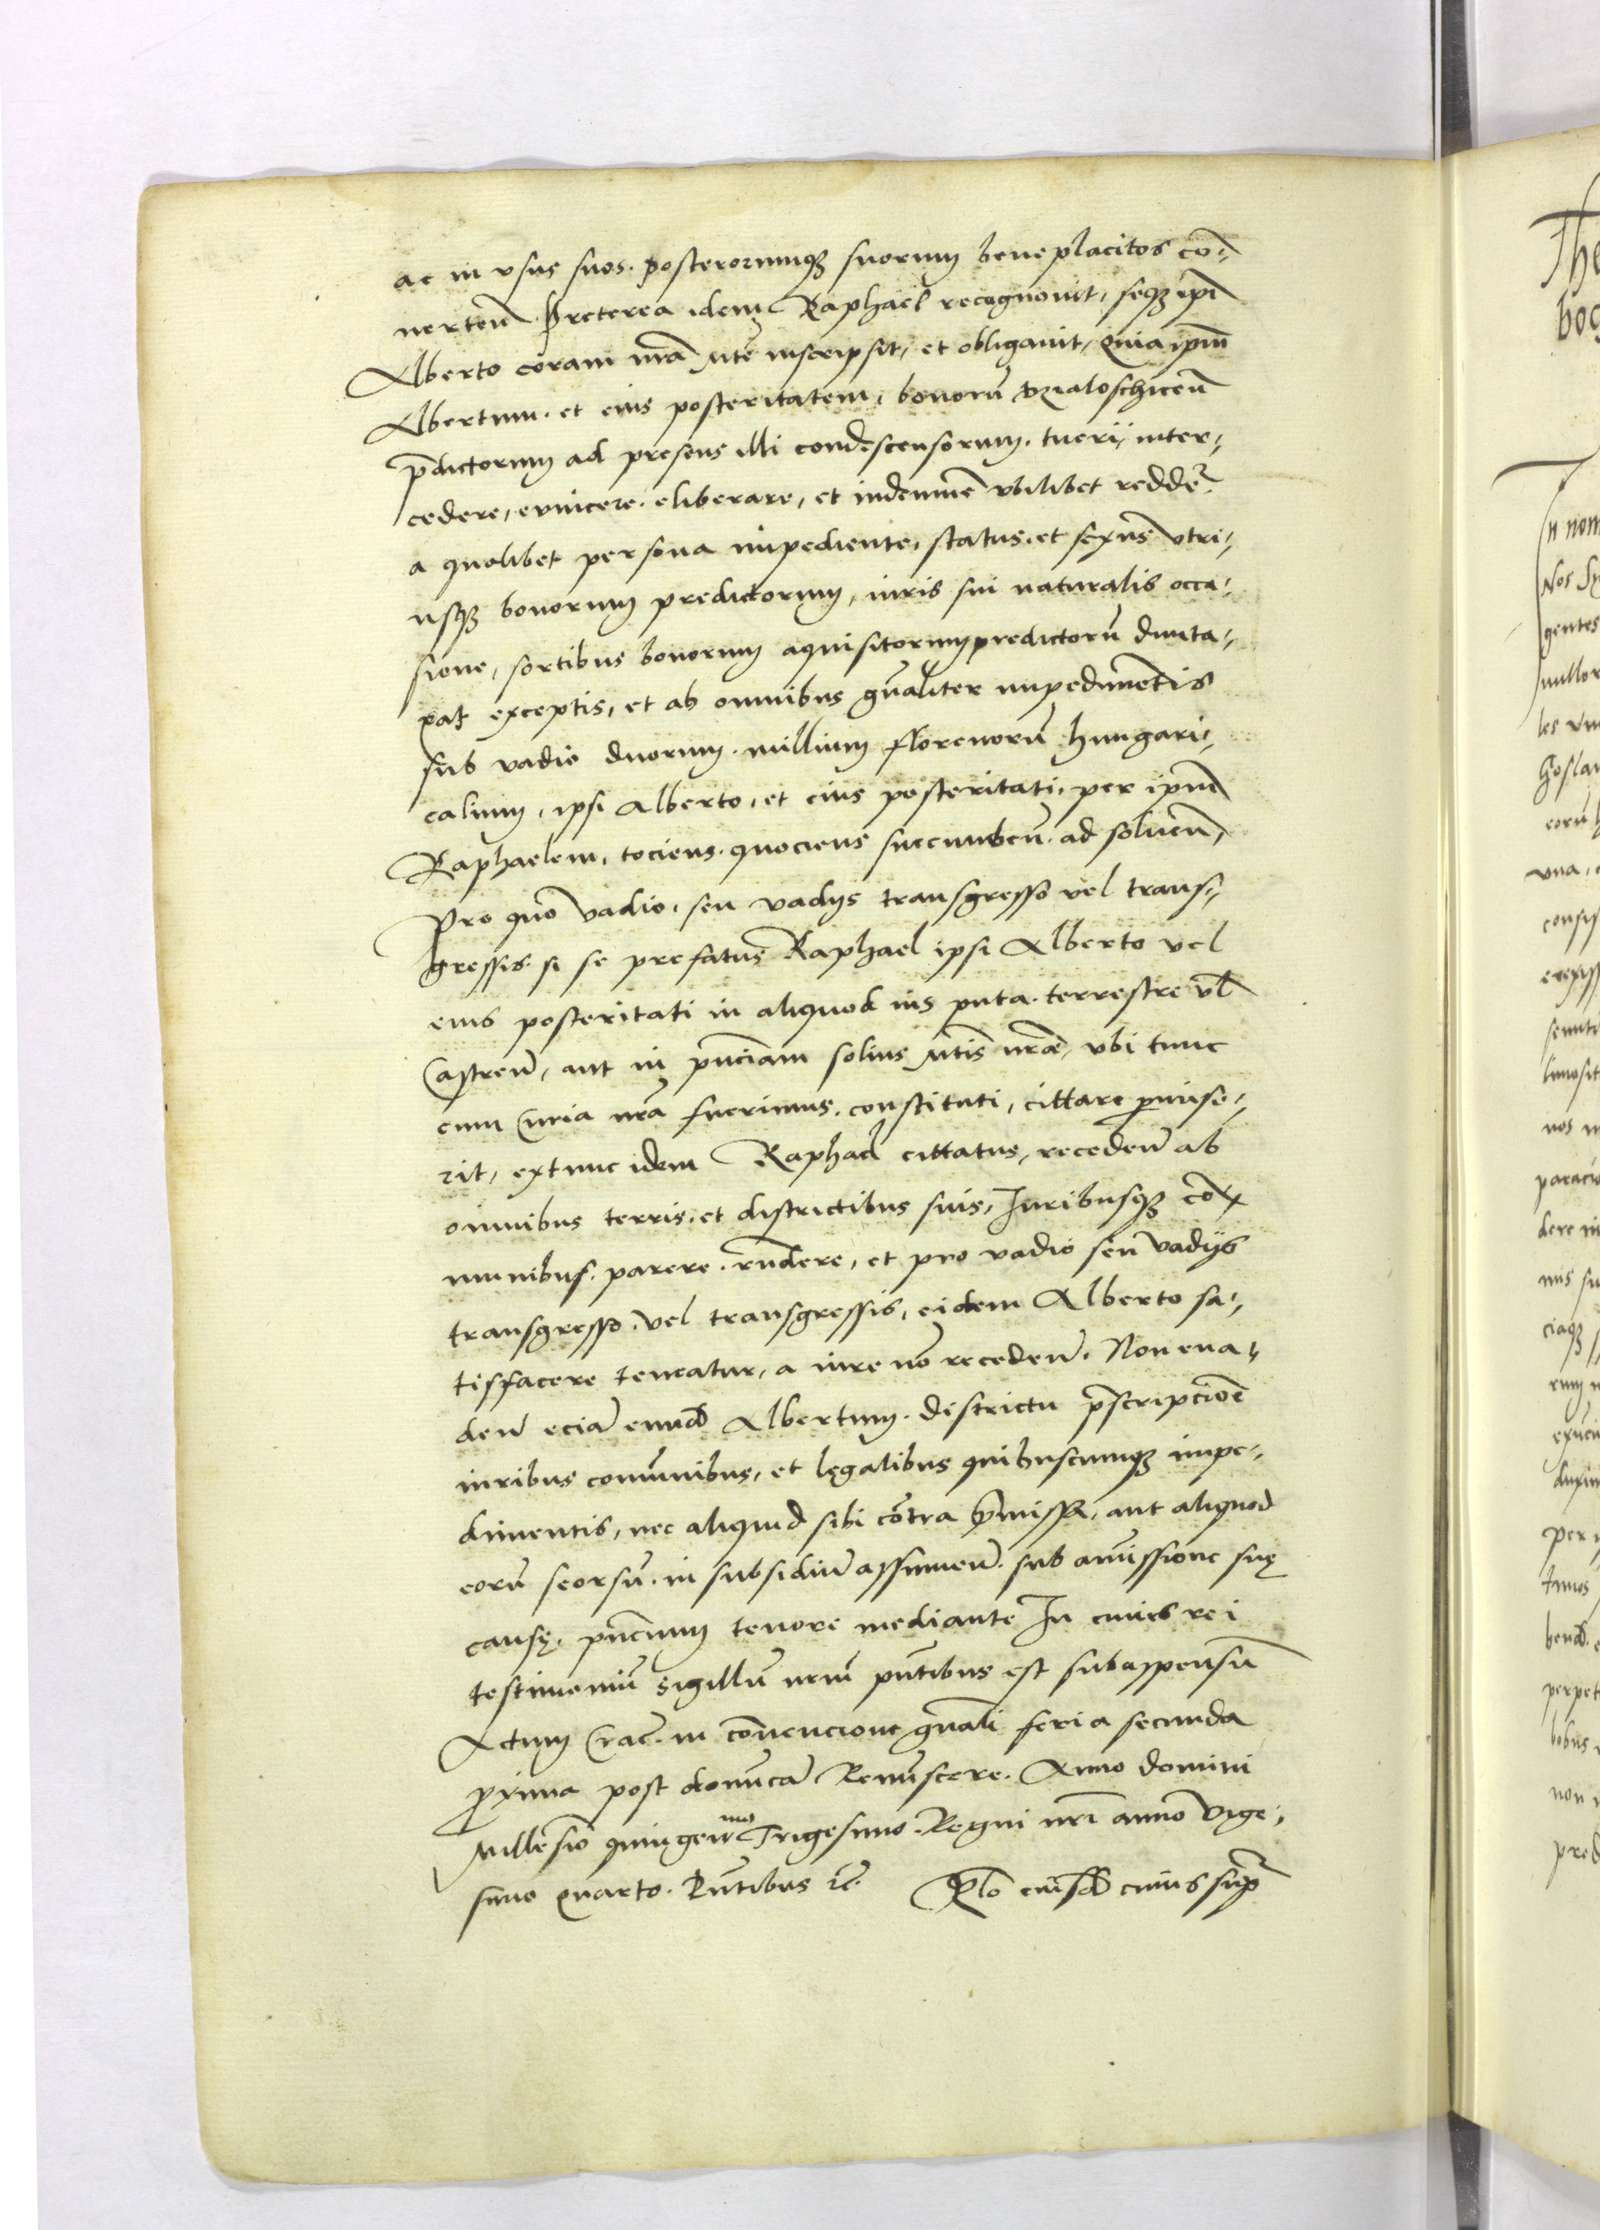 ac in vsus suos. posterorumq3 suorum beneplacitos cō-
uerteñ. Preterea idem Raphael recognouit, seq3 ipī
Alberto coram mtã nrã inscripsit, et obligauit, Quia ipm̃
Albertum. et eius posteritatem, bonorũ
p̄dictorum ad presens illi condescensorum. tueri, inter-
cedere, euincere. eliberare, et indemnẽ vbilibet reddẽ
a qualibet persona impediente, status. et sexus vtri-
usq3 bonorum predictorum, iuris sui naturalis occa-
sione, sortibus bonorum aquisitorum predictorũ dunta-
xat exceptis, et ab omnibus gñaliter impedimẽtis
sub vadio duorum. millium florenorũ hungari-
calium, ipsi Alberto, et eius posteritati, per ipm̃
Raphaelem, tociens. quociens succumbeñ. ad solueñ,
Pro quo vadio, seu vadijs transgresso vel trans-
gressis. si se prefatus Raphael ipsi Alberto vel
eius posteritati in aliquod ius puta. terrestre vl̃
Castreñ, aut in pñciam solius mtis nrae, vbi tunc
cum Curia nrã fuerimus. constituti, cittare p̱mise-
rit, extunc idem Raphael cittatus, recedeñ ab
omnibus terris. et districtibus suis, Juribusq3 cō-
munibus. parere. rñdere, et pro vadio seu vadijs
transgresso. vel transgressis, eidem Alberto sa-
tisfacere teneatur, a iure nõ recedeñ. Non eua-
deñ eciã eund̃ Albertum. districtu p̄scripcioñe
iuribus com̃unibus, et legalibus quibuscumq3 impe-
dimentis, nec aliquid sibi cõtra p̄missa, aut aliquod
eorũ seorsũ. in subsidiũ assumeñ. sub amissione suę
causę, pñcium tenore mediante In cuius rei
testimoniũ sigillũ nrm̃ pñtibus est subappensũ
Actum Crac̃. in cõuencione gñali feria secunda
p̱xima post dominicã Reminiscere. Anno domini
Millesiõ quingeñmo Trigesimo. Regni nrĩ anno vige-
simo quarto. Pñtibus rc̃. Rlõ eiusd̃ cuius supr̃
The
bog
n nom
Nos
gentes
nullor
les
eorũ
vna,
consis
nos
dere in
nis su
ciaq3
per
perpet
non
pred